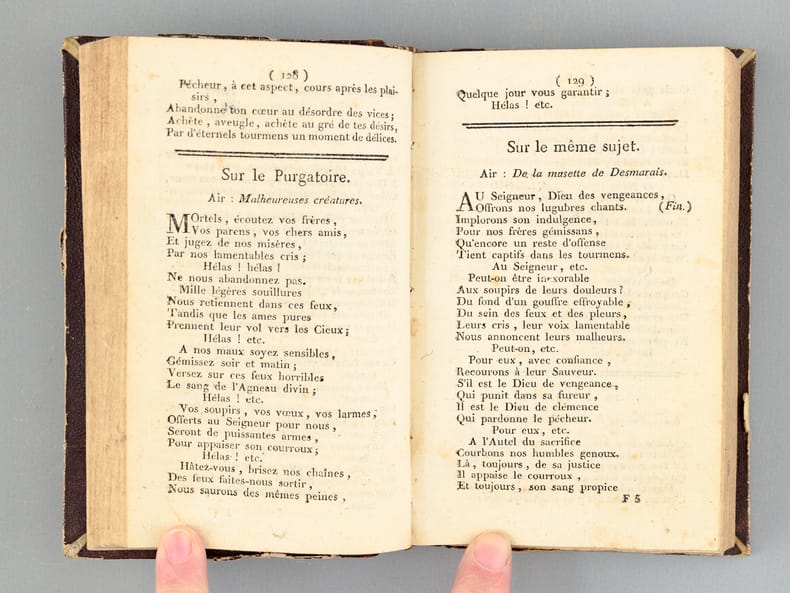 ( 128 )
Pécheur, à cet aspect, cours après les plai-
sirs,
Abandonne ton cœur au désordre des vices;
Achète, aveugle, achète au gré de tes désirs,
Par d'éternels tourmens un moment de délices.
Sur le Purgatoire.
Air : Malheureuses créatures.
MOrtels, écoutez vos frères,
Vos parens, vos chers amis,
Et jugez de nos misères,
Par nos lamentables cris;
Hélas ! hélas !
Ne nous abandonnez pas.
Mille légères souillures
Nous retiennent dans ces feux,
Tandis que les ames pures
Prennent leur vol vers les Cieux;
Hélas ! etc.
A nos maux soyez sensibles,
Gémissez soir et matin;
Versez sur ces feux horribles
Le sang de l'Agneau divin;
Hélas ! etc.
Vos soupirs, vos vœux, vos larmes,
Offerts au Seigneur pour nous,
Seront de puissantes armes,
Pour appaiser son courroux;
Hélas ! etc.
Hâtez-vous, brisez nos chaînes,
Des feux faites-nous sortir,
Nous saurons des mêmes peines,
( 129 )
Quelque jour vous garantir;
Hélas ! etc.
Sur le même sujet.
Air : De la musette de Desmarais.
AU Seigneur, Dieu des vengeances,
Offrons nos lugubres chants. (Fin.)
Implorons son indulgence,
Pour nos frères gémissans,
Qu'encore un reste d'offense
Tient captifs dans les tourmens.
Au Seigneur, etc.
Peut-on être inexorable
Aux soupirs de leurs douleurs?
Du fond d'un gouffre effroyable,
Du sein des feux et des pleurs,
Leurs cris, leur voix lamentable
Nous annoncent leurs malheurs.
Peut-on, etc.
Pour eux, avec confiance,
Recourons à leur Sauveur.
S'il est le Dieu de vengeance,
Qui punit dans sa fureur,
Il est le Dieu de clémence
Qui pardonne le pécheur.
Pour eux, etc.
A l'Autel du sacrifice
Courbons nos humbles genoux.
Là, toujours, de sa justice
Il appaise le courroux,
Et toujours, son sang propice
F 5